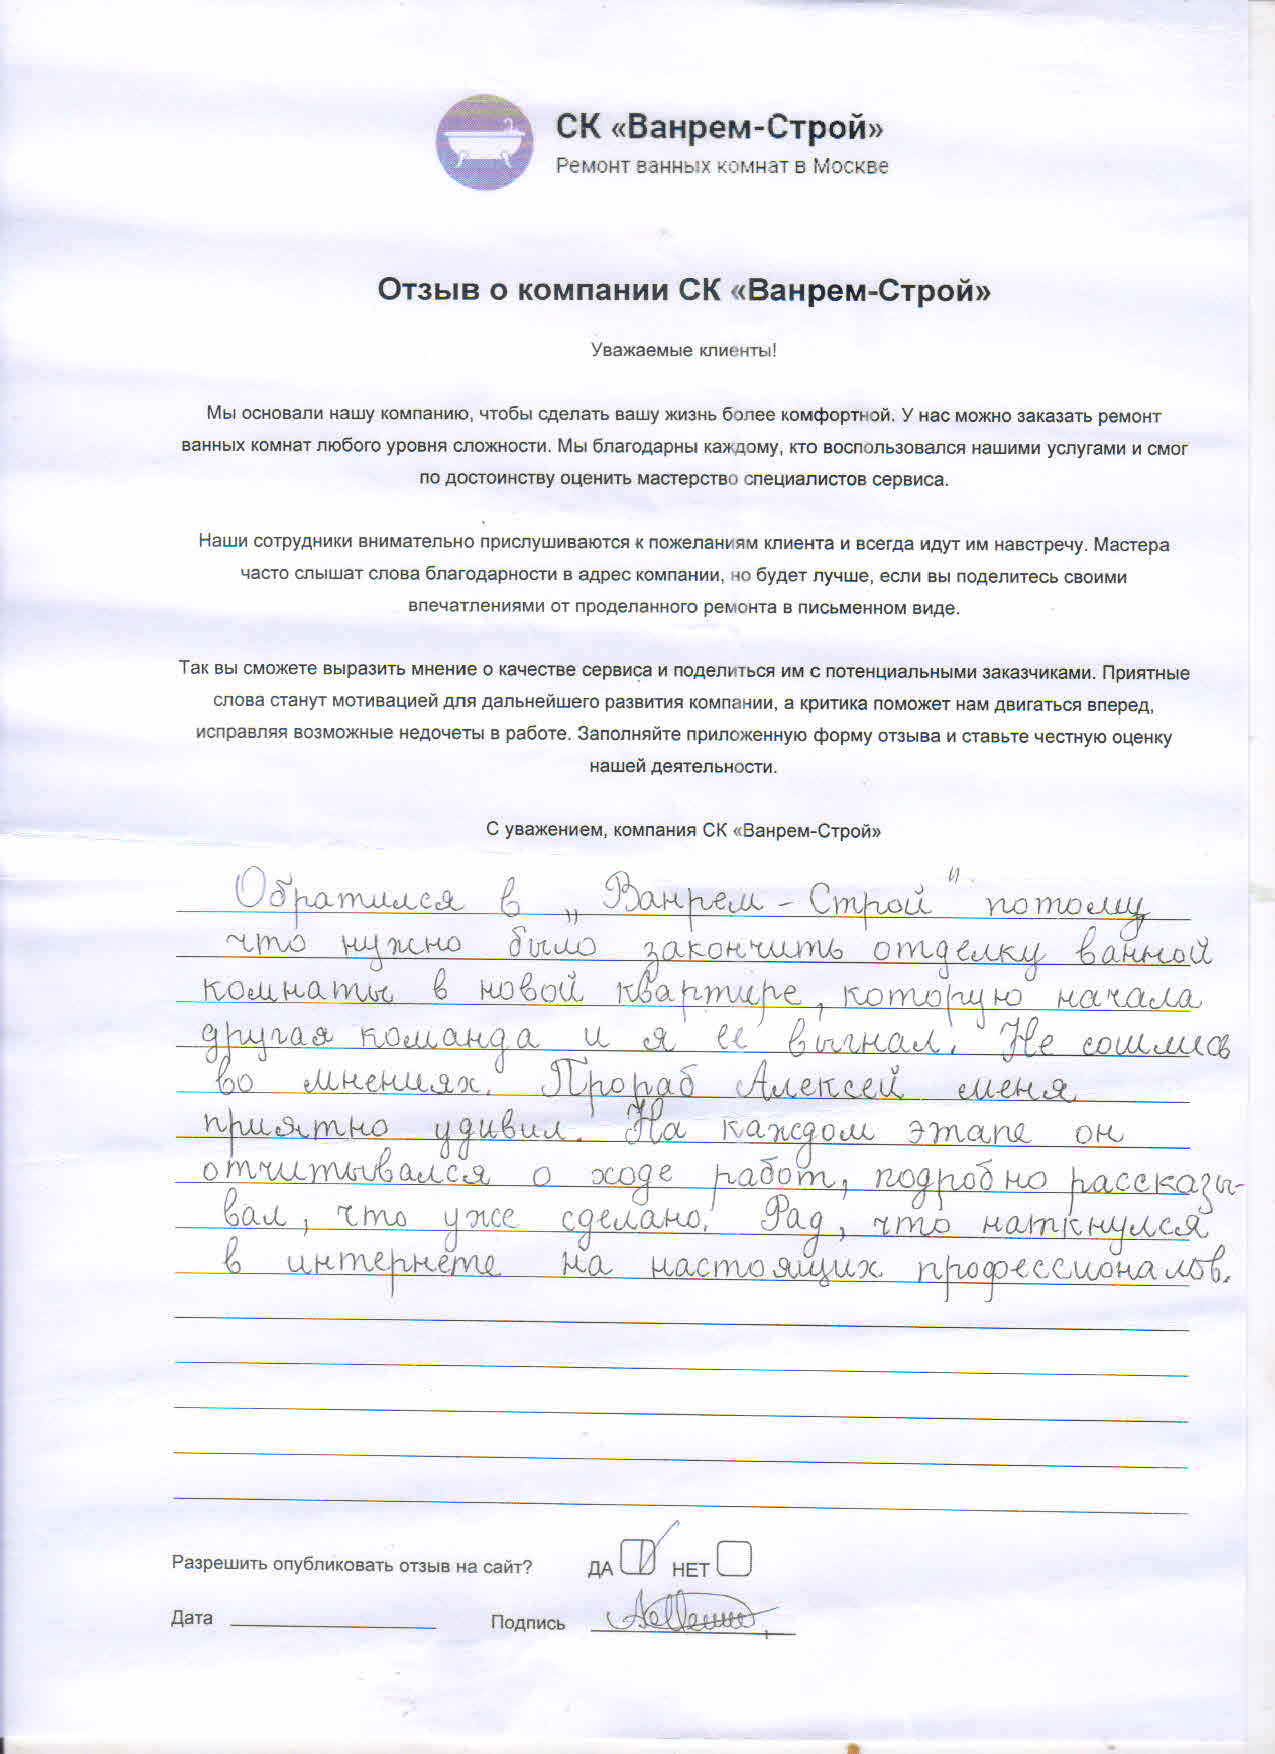 СК «Ванрем-Строй»
Ремонт ванных комнат в Москве
Отзыв о компании СК «Ванрем-Строй»
Уважаемые клиенты!
Мы основали нашу компанию, чтобы сделать вашу жизнь более комфортной. У нас можно заказать ремонт
ванных комнат любого уровня сложности. Мы благодарны каждому, кто воспользовался нашими услугами и смог
по достоинству оценить мастерство специалистов сервиса.
Наши сотрудники внимательно прислушиваются к пожеланиям клиента и всегда идут им навстречу. Мастера
часто слышат слова благодарности в адрес компании, но будет лучше, если вы поделитесь своими
впечатлениями от проделанного ремонта в письменном виде.
Так вы сможете выразить мнение о качестве сервиса и поделиться им с потенциальными заказчиками. Приятные
слова станут мотивацией для дальнейшего развития компании, а критика поможет нам двигаться вперед,
исправляя возможные недочеты в работе. Заполняйте приложенную форму отзыва и ставьте честную оценку
нашей деятельности.
С уважением, компания СК «Ванрем-Строй»
Обратился в „Ванрем-Строй" потому
что нужно было закончить отделку ванной
комнаты в новой квартире, которую начала
другая команда и я её выгнал. Не сошлись
во мнениях. Прораб Алексей меня
приятно удивил. На каждом этапе он
отчитывался о ходе работ, подробно рассказы-
вал, что уже сделано. Рад, что наткнулся
в интернете на настоящих профессионалов.
Разрешить опубликовать отзыв на сайт? ДА НЕТ
Дата Подпись